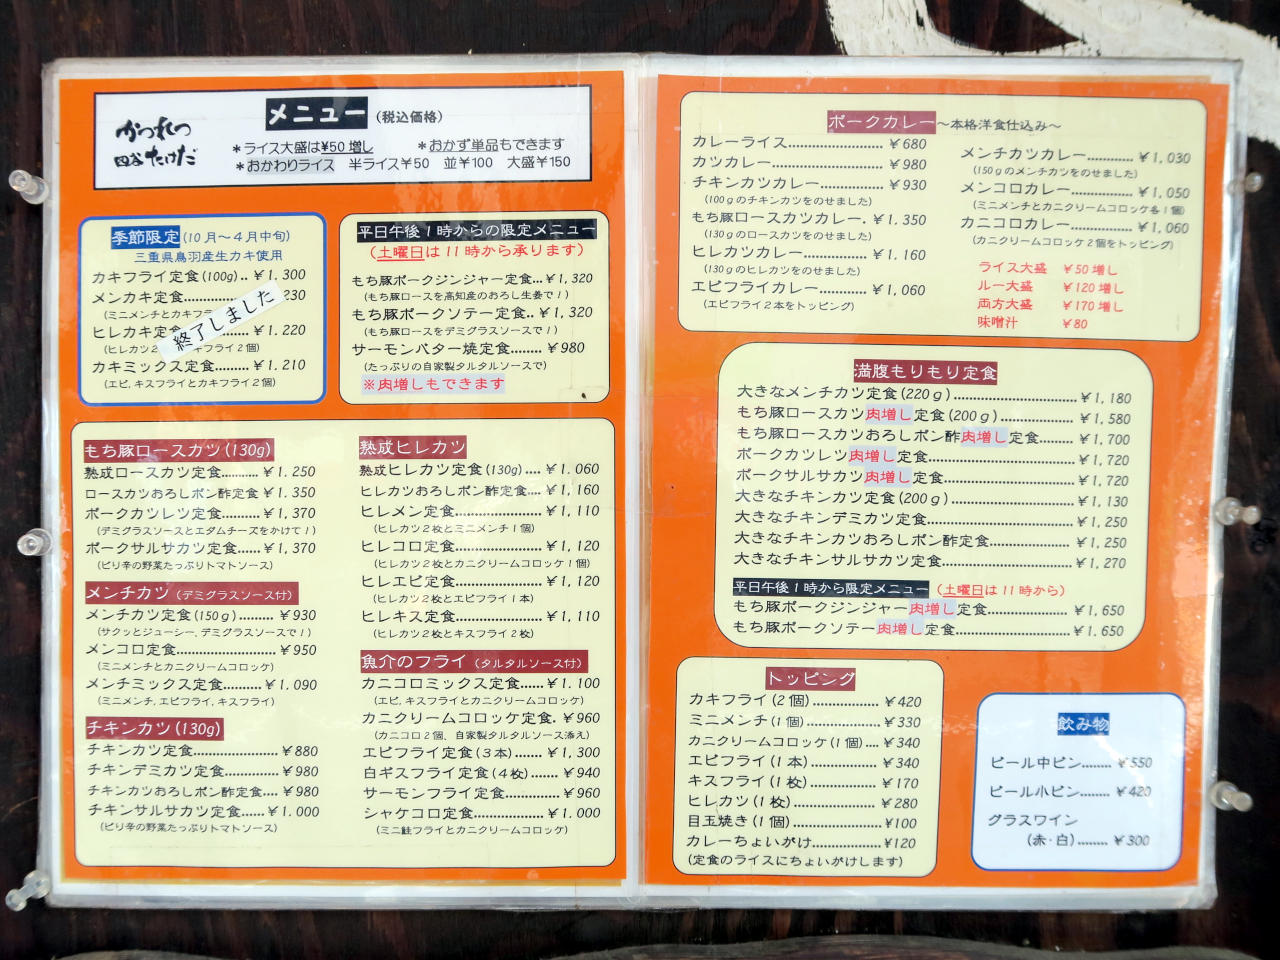 かつれつ
四谷たけだ
メニュー(税込価格)
＊ライス大盛は¥50増し ＊おかず単品もできます
＊おかわりライス 半ライス¥50 並¥100 大盛¥150
季節限定(10月～4月中旬)
三重県鳥羽産生カキ使用
カキフライ定食(100g)..¥1.300
メンカキ定食............230
(ミニメンチとカキフラ
ヒレキカキ定食........¥1.220
(ヒレカツ2 キフライ2個)
カキミックス定食.......¥1.210
(エビ,キスフライとカキフライ2個)
終了しました
平日午後1時からの限定メニュー
(土曜日は11時から承ります)
もち豚ポークジンジャー定食...¥1,320
(もち豚ロースを高知産のおろし生姜で!)
もち豚ポークソテー定食...¥1,320
(もち豚ロースをデミグラスソースで!)
サーモンバター焼定食........¥980
(たっぷりの自家製タルタルソースで)
※肉増しもできます
もち豚ロースカツ(130g)
熟成ロースカツ定食.........¥1.250
ロースカツおろしポン酢定食.¥1.350
ポークカツレツ定食.......¥1,370
(デミグラスソースとエダムチーズをかけて!)
ポークサルサカツ定食......¥1,370
(ピリ辛の野菜たっぷりトマトソース)
メンチカツ(デミグラスソース付)
メンチカツ定食(150g).....¥930
(サクッとジューシー,デミグラスソースで!)
メンコロ定食.................¥950
(ミニメンチとカニクリームコロッケ)
メンチミックス定食..........¥1.090
(ミニメンチ,エビフライ,キスフライ)
チキンカツ(130g)
チキンカツ定食...............¥880
チキンデミカツ定食...........¥980
チキンカツおろしポン酢定食....¥980
チキンサルサカツ定食......¥1.000
(ピリ辛の野菜たっぷりトマトソース)
熟成ヒレカツ
熟成ヒレカツ定食(130g)....¥1.060
ヒレカツおろしポン酢定食....¥1,160
ヒレメン定食..................¥1,110
(ヒレカツ2枚とミニメンチ1個)
ヒレコロ定食..................¥1,120
(ヒレカツ2枚とカニクリームコロッケ1個)
ヒレエビ定食..................¥1,120
(ヒレカツ2枚とエビフライ1本)
ヒレキス定食..................¥1,110
(ヒレカツ2枚とキスフライ2枚)
魚介のフライ(タルタルソース付)
カニコロミックス定食......¥1.100
(エビ,キスフライとカニクリームコロッケ)
カニクリームコロッケ定食.¥960
(カニコロ2個、自家製タルタルソース添え)
エビフライ定食(3本).......¥1,300
白ギスフライ定食(4枚).......¥940
サーモンフライ定食...........¥960
シャケコロ定食..............¥1.000
(ミニ鮭フライとカニクリームコロッケ)
ポークカレー～本格洋食仕込み～
カレーライス..................¥680
カツカレー....................¥980
チキンカツカレー.............¥930
(100gのチキンカツをのせました)
もち豚ロースカツカレー.¥1.350
(130gのロースカツをのせました)
ヒレカツカレー.............¥1.160
(130gのヒレカツをのせました)
エビフライカレー...........¥1,060
(エビフライ2本をトッピング)
メンチカツカレー............¥1,030
(150gのメンチカツをのせました)
メンコロカレー.............¥1,050
(ミニメンチとカニクリームコロッケ各1個)
カニコロカレー.............¥1,060
(カニクリームコロッケ2個をトッピング)
ライス大盛 ¥50増し
ルー大盛 ¥120増し
両方大盛 ¥170増し
味噌汁 ¥80
満腹もりもり定食
大きなメンチカツ定食(220g)............................¥1,180
もち豚ロースカツ肉増し定食(200g)..................¥1,580
もち豚ロースカツおろしポン酢肉増し定食........¥1,700
ポークカツレツ肉増し定食..................................¥1,720
ポークサルサカツ肉増し定食..............................¥1,720
大きなチキンカツ定食(200g)............................¥1,130
大きなチキンデミカツ定食.................................¥1,250
大きなチキンカツおろしポン酢定食...................¥1,250
大きなチキンサルサカツ定食..............................¥1,270
平日午後1時から限定メニュー(土曜日は11時から)
もち豚ポークジンジャー肉増し定食...................¥1,650
もち豚ポークソテー肉増し定食..........................¥1.650
トッピング
カキフライ(2個)...............¥420
ミニメンチ(1個)...............¥330
カニクリームコロッケ(1個)....¥340
エビフライ(1本)...............¥340
キスフライ(1枚)...............¥170
ヒレカツ(1枚)..................¥280
目玉焼き(1個)..................¥100
カレーちょいがけ...............¥120
(定食のライスにちょいがけします)
飲み物
ビール中ビン........¥550
ビール小ビン........¥420
グラスワイン
(赤・白)........¥300